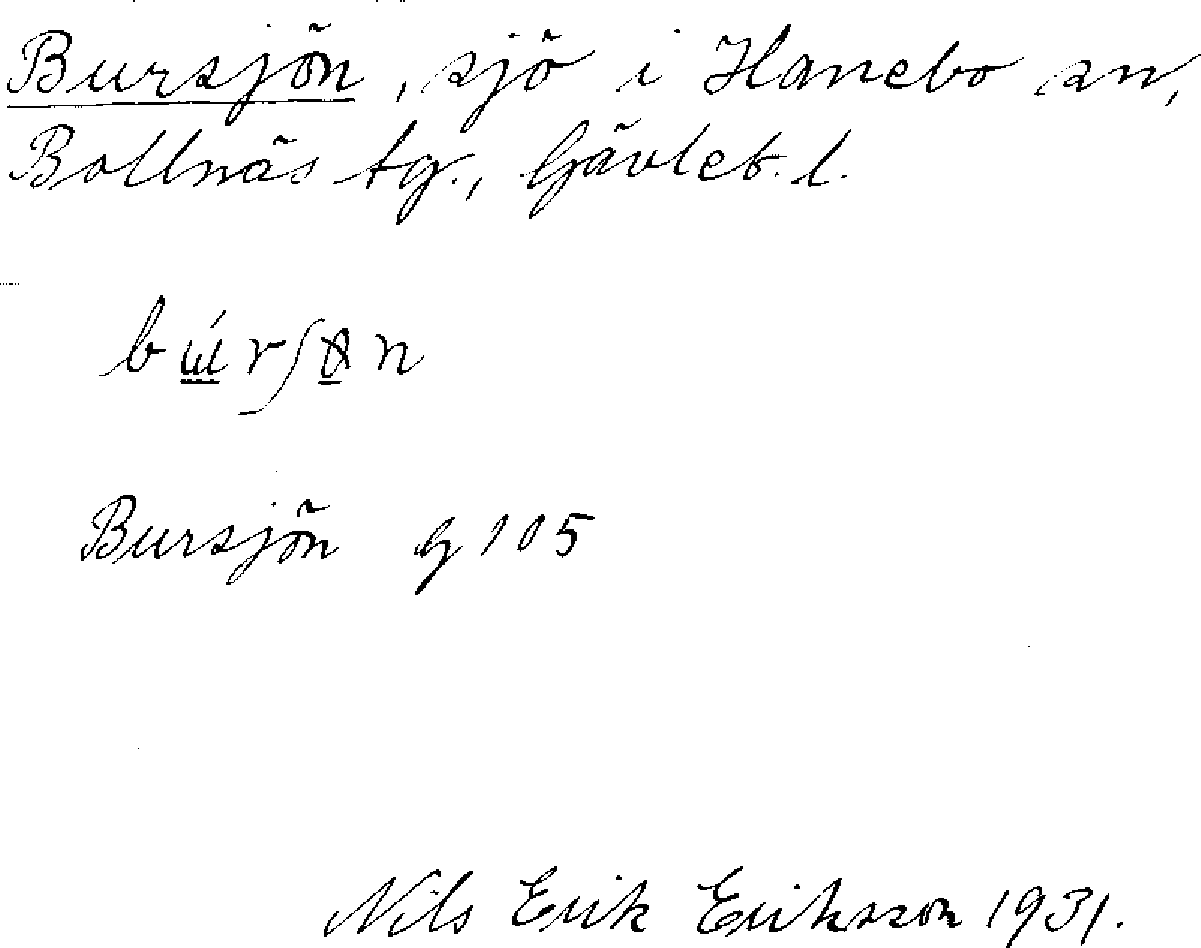 Bursjön, sjö i Hanebo sn,
Bollnäs tg., Gävleb. l.
Bursjön G 105
Nils Erik Eriksson 1931.